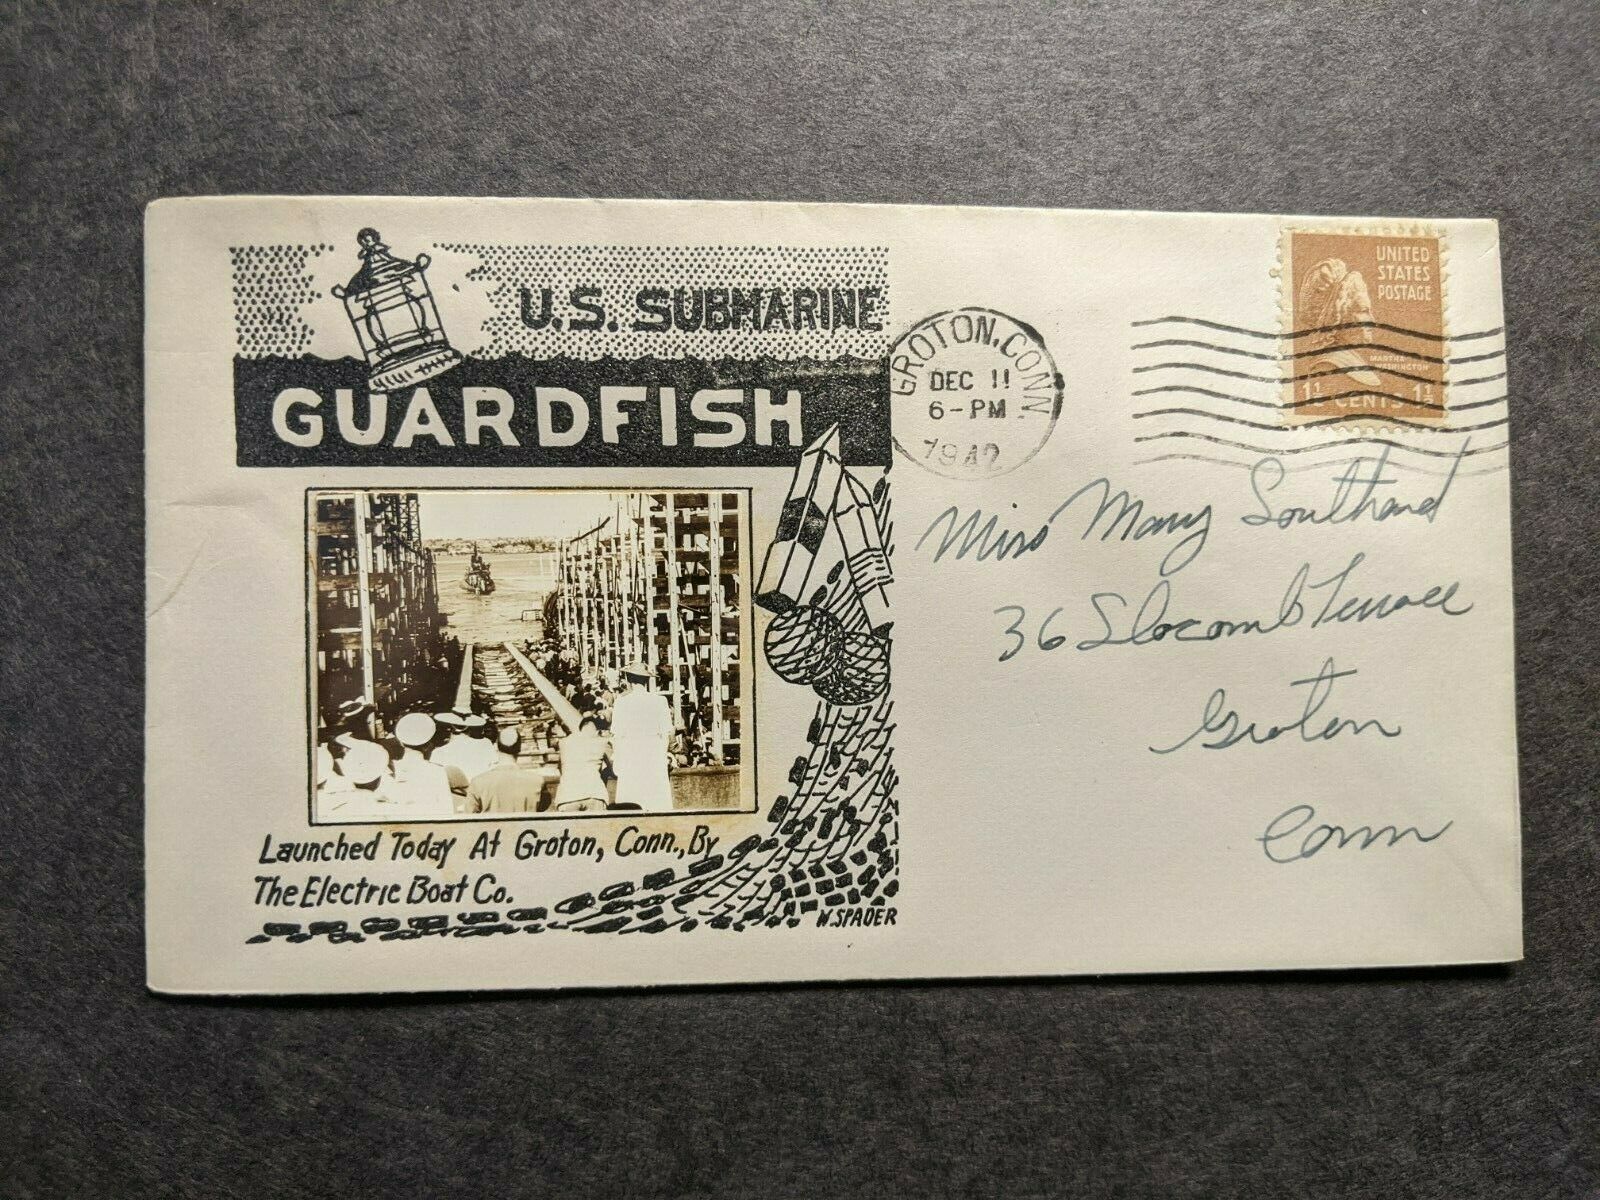 U.S. SUBMARINE
GUARDFISH
Launched Today At Groton, Conn., By
The Electric Boat Co.
W. SPADER
GROTON, CONN.
DEC 11
6-PM
1942
UNITED
STATES
POSTAGE
MARTHA
WASHINGTON
1½ CENTS 1½
Miss Mary Southard
36 Slocomb Terrace
Groton
Conn